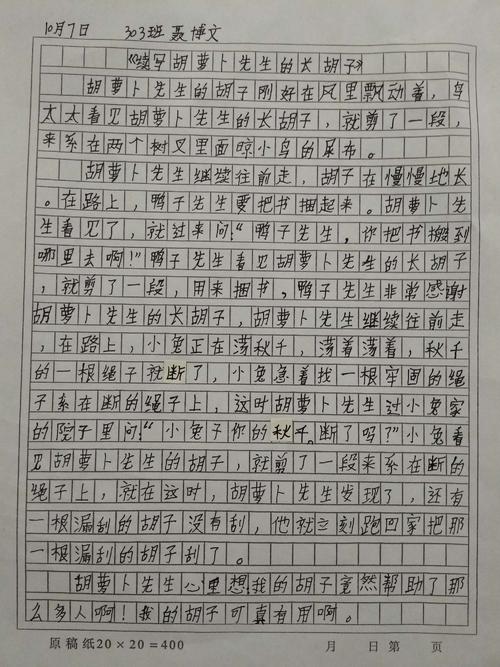 10月7日 303班 聂博文
《续写胡萝卜先生的长胡子》
胡萝卜先生的胡子刚好在风里飘动着，鸟
太太看见胡萝卜先生的长胡子，就剪了一段，
来系在两个树叉里面晾小鸟的尿布。
胡萝卜先生继续往前走，胡子在慢慢地长
。在路上，鸭子先生要把书捆起来。胡萝卜先
生看见了，就过来问：“鸭子先生，你把书搬到
哪里去啊！”鸭子先生看见胡萝卜先生的长胡子
，就剪了一段，用来捆书，鸭子先生非常感谢
胡萝卜先生的长胡子，胡萝卜先生继续往前走
，在路上，小兔正在荡秋千，荡着荡着，秋千
的一根绳子就断了，小兔急着找一根牢固的绳
子系在断的绳子上，这时胡萝卜先生过小兔家
的院子里问：“小兔子你的秋千。断了吗？”小兔看
见胡萝卜先生的胡子，就剪了一段来系在断的
绳子上，就在这时，胡萝卜先生发现了，还有
一根漏刮的胡子没有刮，他就立刻跑回家把那
一根漏刮的胡子刮了。
胡萝卜先生心里想：我的胡子竟然帮助了那
么多人啊！我的胡子可真有用啊。
原稿纸20×20=400 月 日第 页